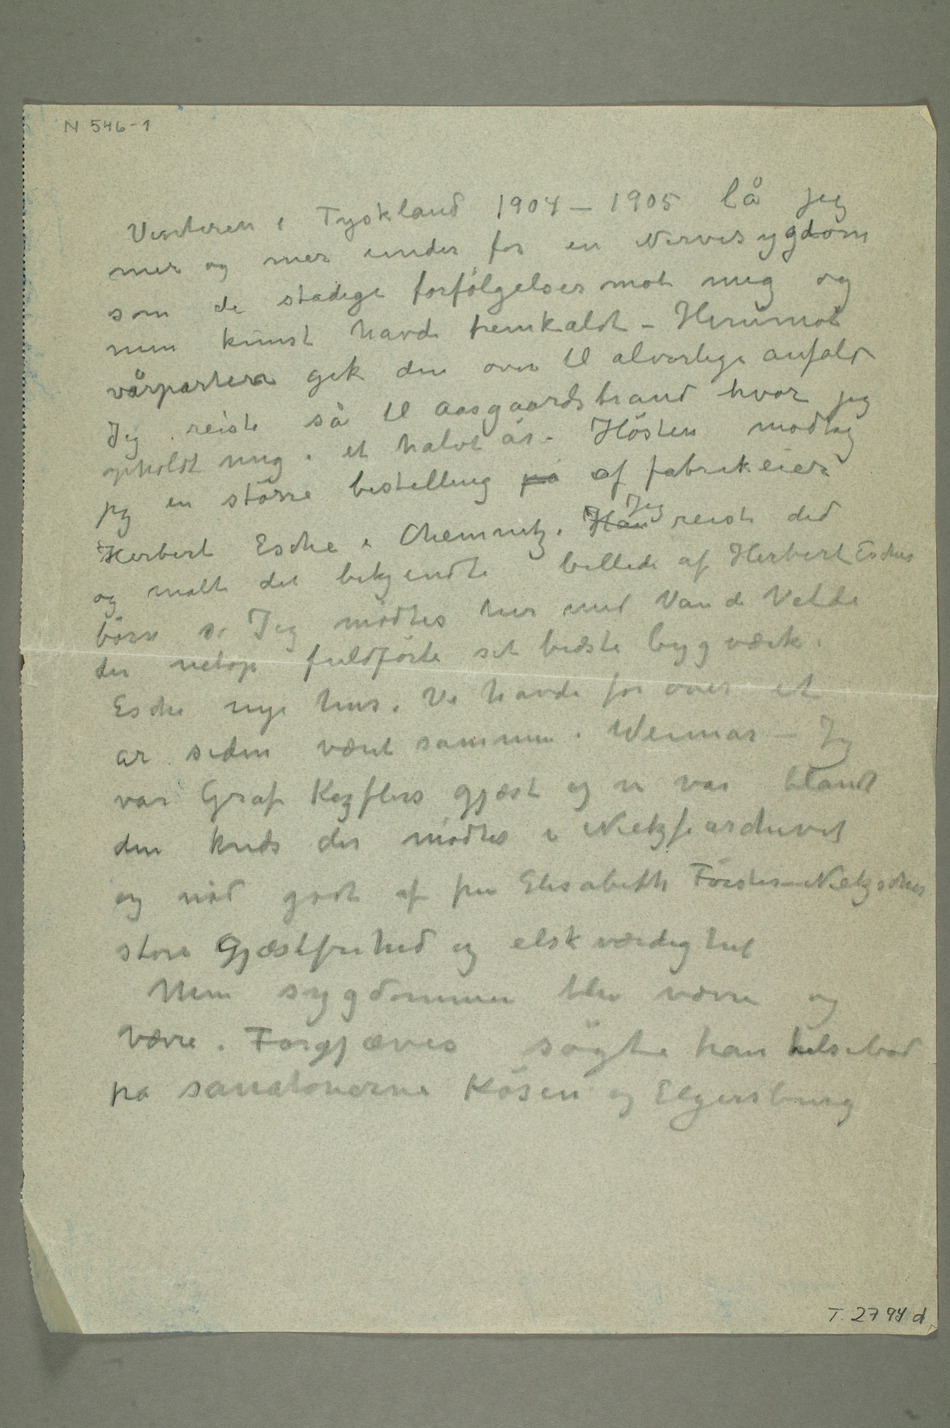 N 546-1
Vinteren i Tyskland 1904 – 1905 lå jeg
mer og mer under for en Nervesygdom
som de stadige forfölgelser mot mig og
min kunst havde fremkaldt – Henimot
vårparten gik den over til alvorlige anfald
Jeg reiste så til Aasgaardstrand hvor jeg
opholdt mig i et halvt år. Hösten modtog
jeg en större bestelling på af fabrikeier
Herbert Esche i Chemnitz. Han Jeg reiste did
og malte det bekjendte billede af Herbert Esches
börn Jeg mödtes her med Van de Velde
der netop fuldförte sit bedste bygværk.
Esche nye hus. Vi havde for over et
år siden været sammen i Weimar – Jeg
var Graf Kezflers gjæst og vi var blandt
den kreds der mödtes i Nietzschearchivet
og nöd godt af fru Elisabeth Förster-Nietzsches
store Gjæstfrihed og elskværdighet
Min sygdommen blev værre og
værre. Forgjæves sögte han helsebod
på sanatorierne Kösen og Elgersburg
T. 2794 d